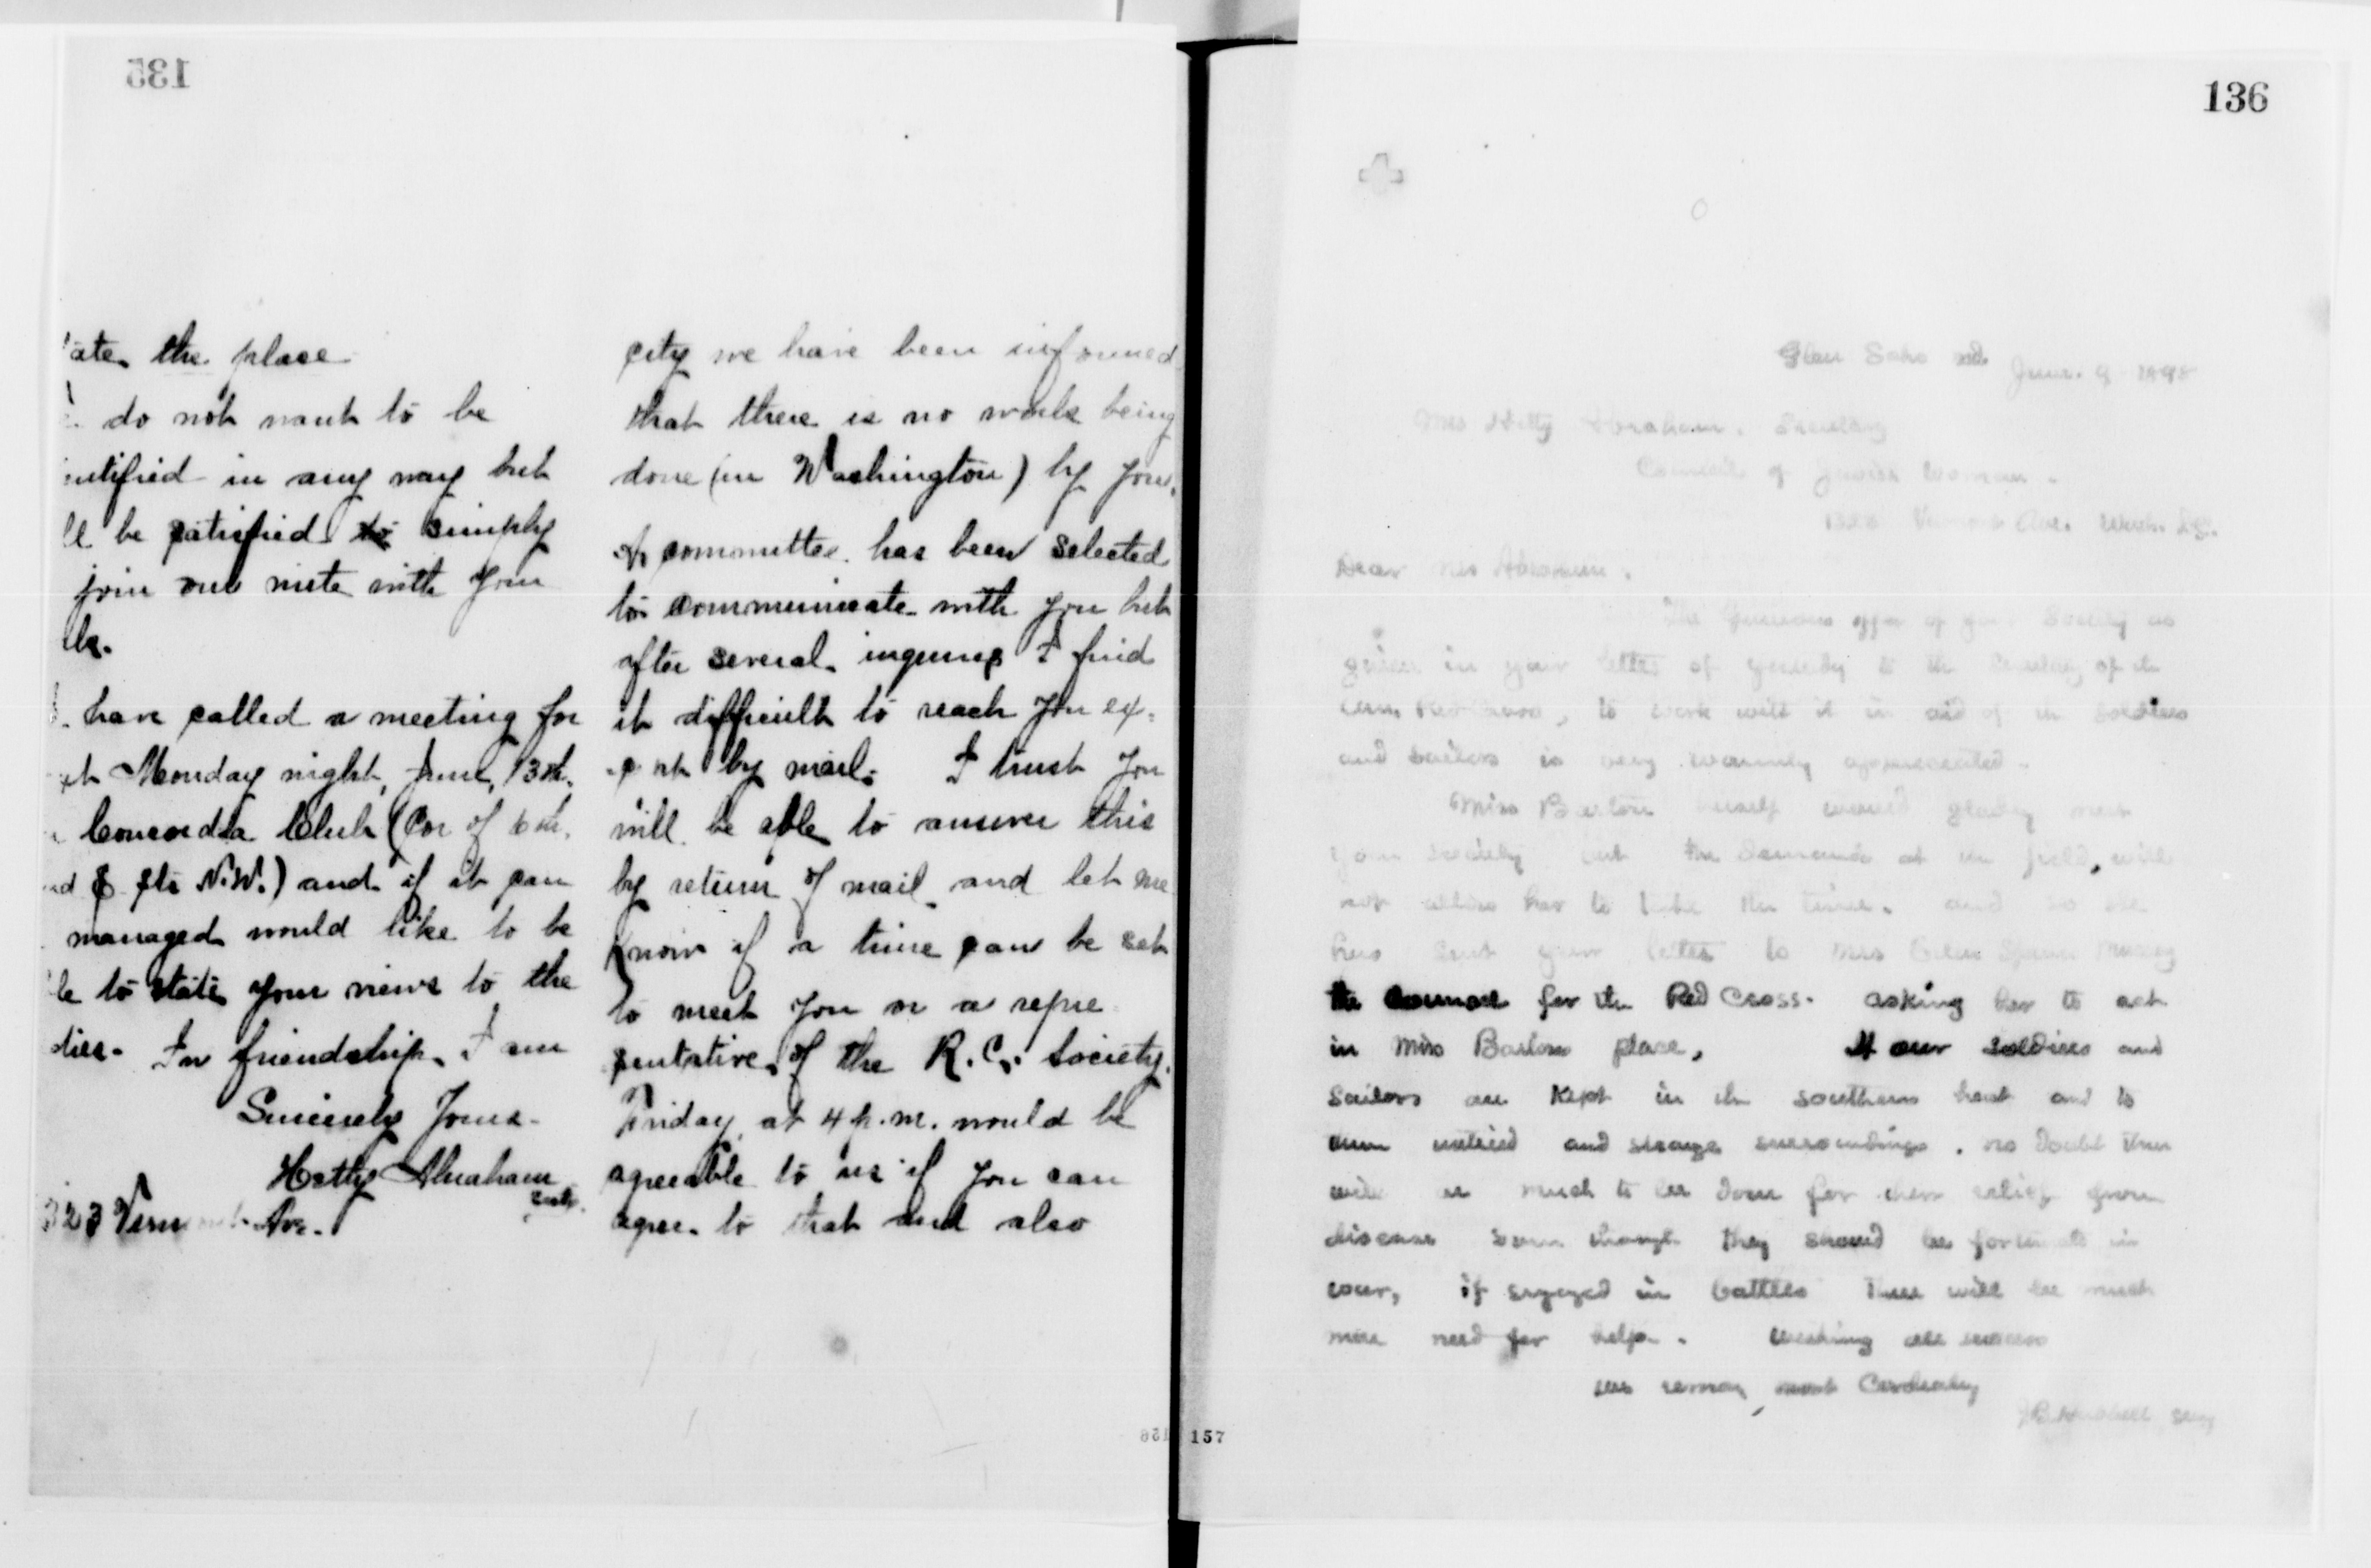 135
city we have been informed
that there is no work being
done (in Washington) by you.
A committee has been selected
to communicate with you but
after several inquiries I find
it difficult to reach you ex-
cept by mail. I trust you
will be able to answer this
by return of mail and let me
know if a time can be set
to meet you or a repre
sentative of the R.C. Society.
Friday, at 4 p.m. would be
agreeable to us if you can
agree to that and also
ate the place
do not want to be
ntified in any way but
ll be satisfied to simply
join our mite with your
have called a meeting for
Monday night, June, 13th.
Concordia Club (Cor of 6th.
N.W.) and if it can
managed would like to be
le to state your views to the
dies. In friendship, I am
Sincerely Yours-
Hetty Abraham
323 Ave.
156 157
136
Glen Echo Md June 9 1898
Mrs Hetty Abraham. Secretary
Council of Jewish Women.
Vermont Ave. Wash. D.C.
Dear Mrs Abraham.
The generous offer of your Society as
given in your letter of to the Secretary of the
Am. Red Cross, to work with it in aid of the soldiers
and sailors is very warmly appreciated.
Miss Barton herself would gladly meet
your society but the demands at the field, will
not allow her to take the time. and so she
has sent your letter to Mrs Ellen Spencer Mussey
the Counsel for the Red Cross. asking her to act
in Miss Bartons place, If our soldiers and
sailors are kept in the southern heat and to
them untried and strange surroundings. no doubt there
will be much to be done for their relief from
disease even though they should be fortunate in
war, if engaged in battles there will be much
more need for help. Wishing all success
we remain, most Cordially
J B Hubbell, Secy